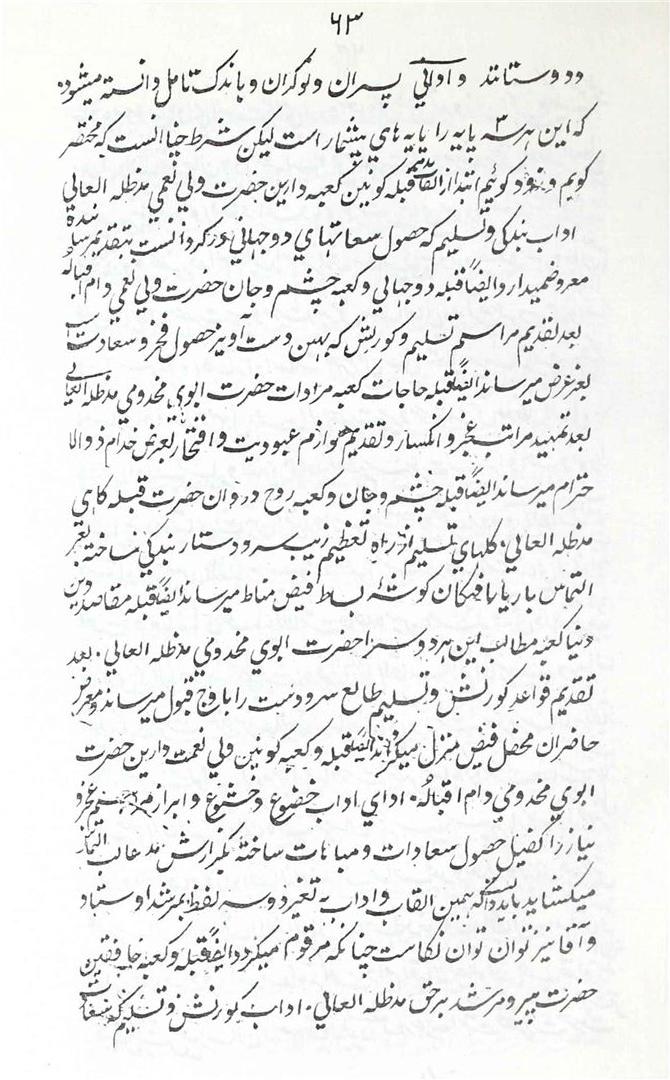 ٦٣
ددوستانند و ادانی پسران و نوکران و باندک تامل دانسته میشود
که این هر سه پایه را پایه های بیشمار است لیکن شرط چنانست که مختصر
کویم و زود کوئیم ابتدا از القاب پدر قبله کونین کعبه دارین حضرت ولی نعمی مدظله العالی
اداب بندکی و تسلیم که حصول سعادتهای دوجهانی در کرد انست بتقدیم رسانیده
معروض میدارد ایضاً قبله دوجهانی و کعبه چشم و جان حضرت ولی نعمی دام اقباله
بعد تقدیم مراسم تسلیم و کورنش که بهین دست آویز حصول فخر و سعادت است
بعز عرض میرساند ایضاً قبله حاجات کعبه مرادات حضرت ابوی مخدومی مدظله العالی
بعد تمهید مراتب عجز و انکسار و تقدیم لوازم عبودیت و افتخار بعرض خدام ذوالا
حترام میرساند ایضاً قبله چشم و جان و کعبه روح و روان حضرت قبله کاهی
مدظله العالی۰ کلهای تسلیم از راه تعظیم زیب سر و دستار بندکی ساخته بعز
التماس باریابافتکان کوشهٔ بساط فیض مناط میرساند ایضاً قبله مقاصد دین
دنیا کعبه مطالب این هر دو سرا حضرت ابوی مخدومی مدظله العالی۰ بعد
تقدیم قواعد کورنش و تسلیم طالع سر و دست را باوج قبول میرساند و معروض
حاضران محفل فیض منزل میکرداند ایضاً قبله و کعبه کونین ولی نعمت دارین حضرت
ابوی مخدومی دام اقبالهٗ۰ ادای اداب خضوع و خشوع و ابراز مراسم عجز و
نیاز را کفیل حصول سعادات و مباهات ساخته بکزارش مدعا لب التماس
میکشاید باید دانست که همین القاب و اداب به تغیر دو سه لفظ بمرشد و استاد
و آقا نیز توان توان نکاست چنانکه مرقوم میکردد ایضاً قبله و کعبه خافقین
حضرت پیر و مرشد برحق مدظله العالی۰ اداب کورنش و تسلیم که